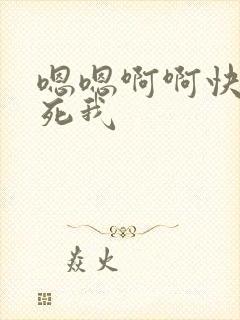 嗯嗯啊啊快
死我
焱火